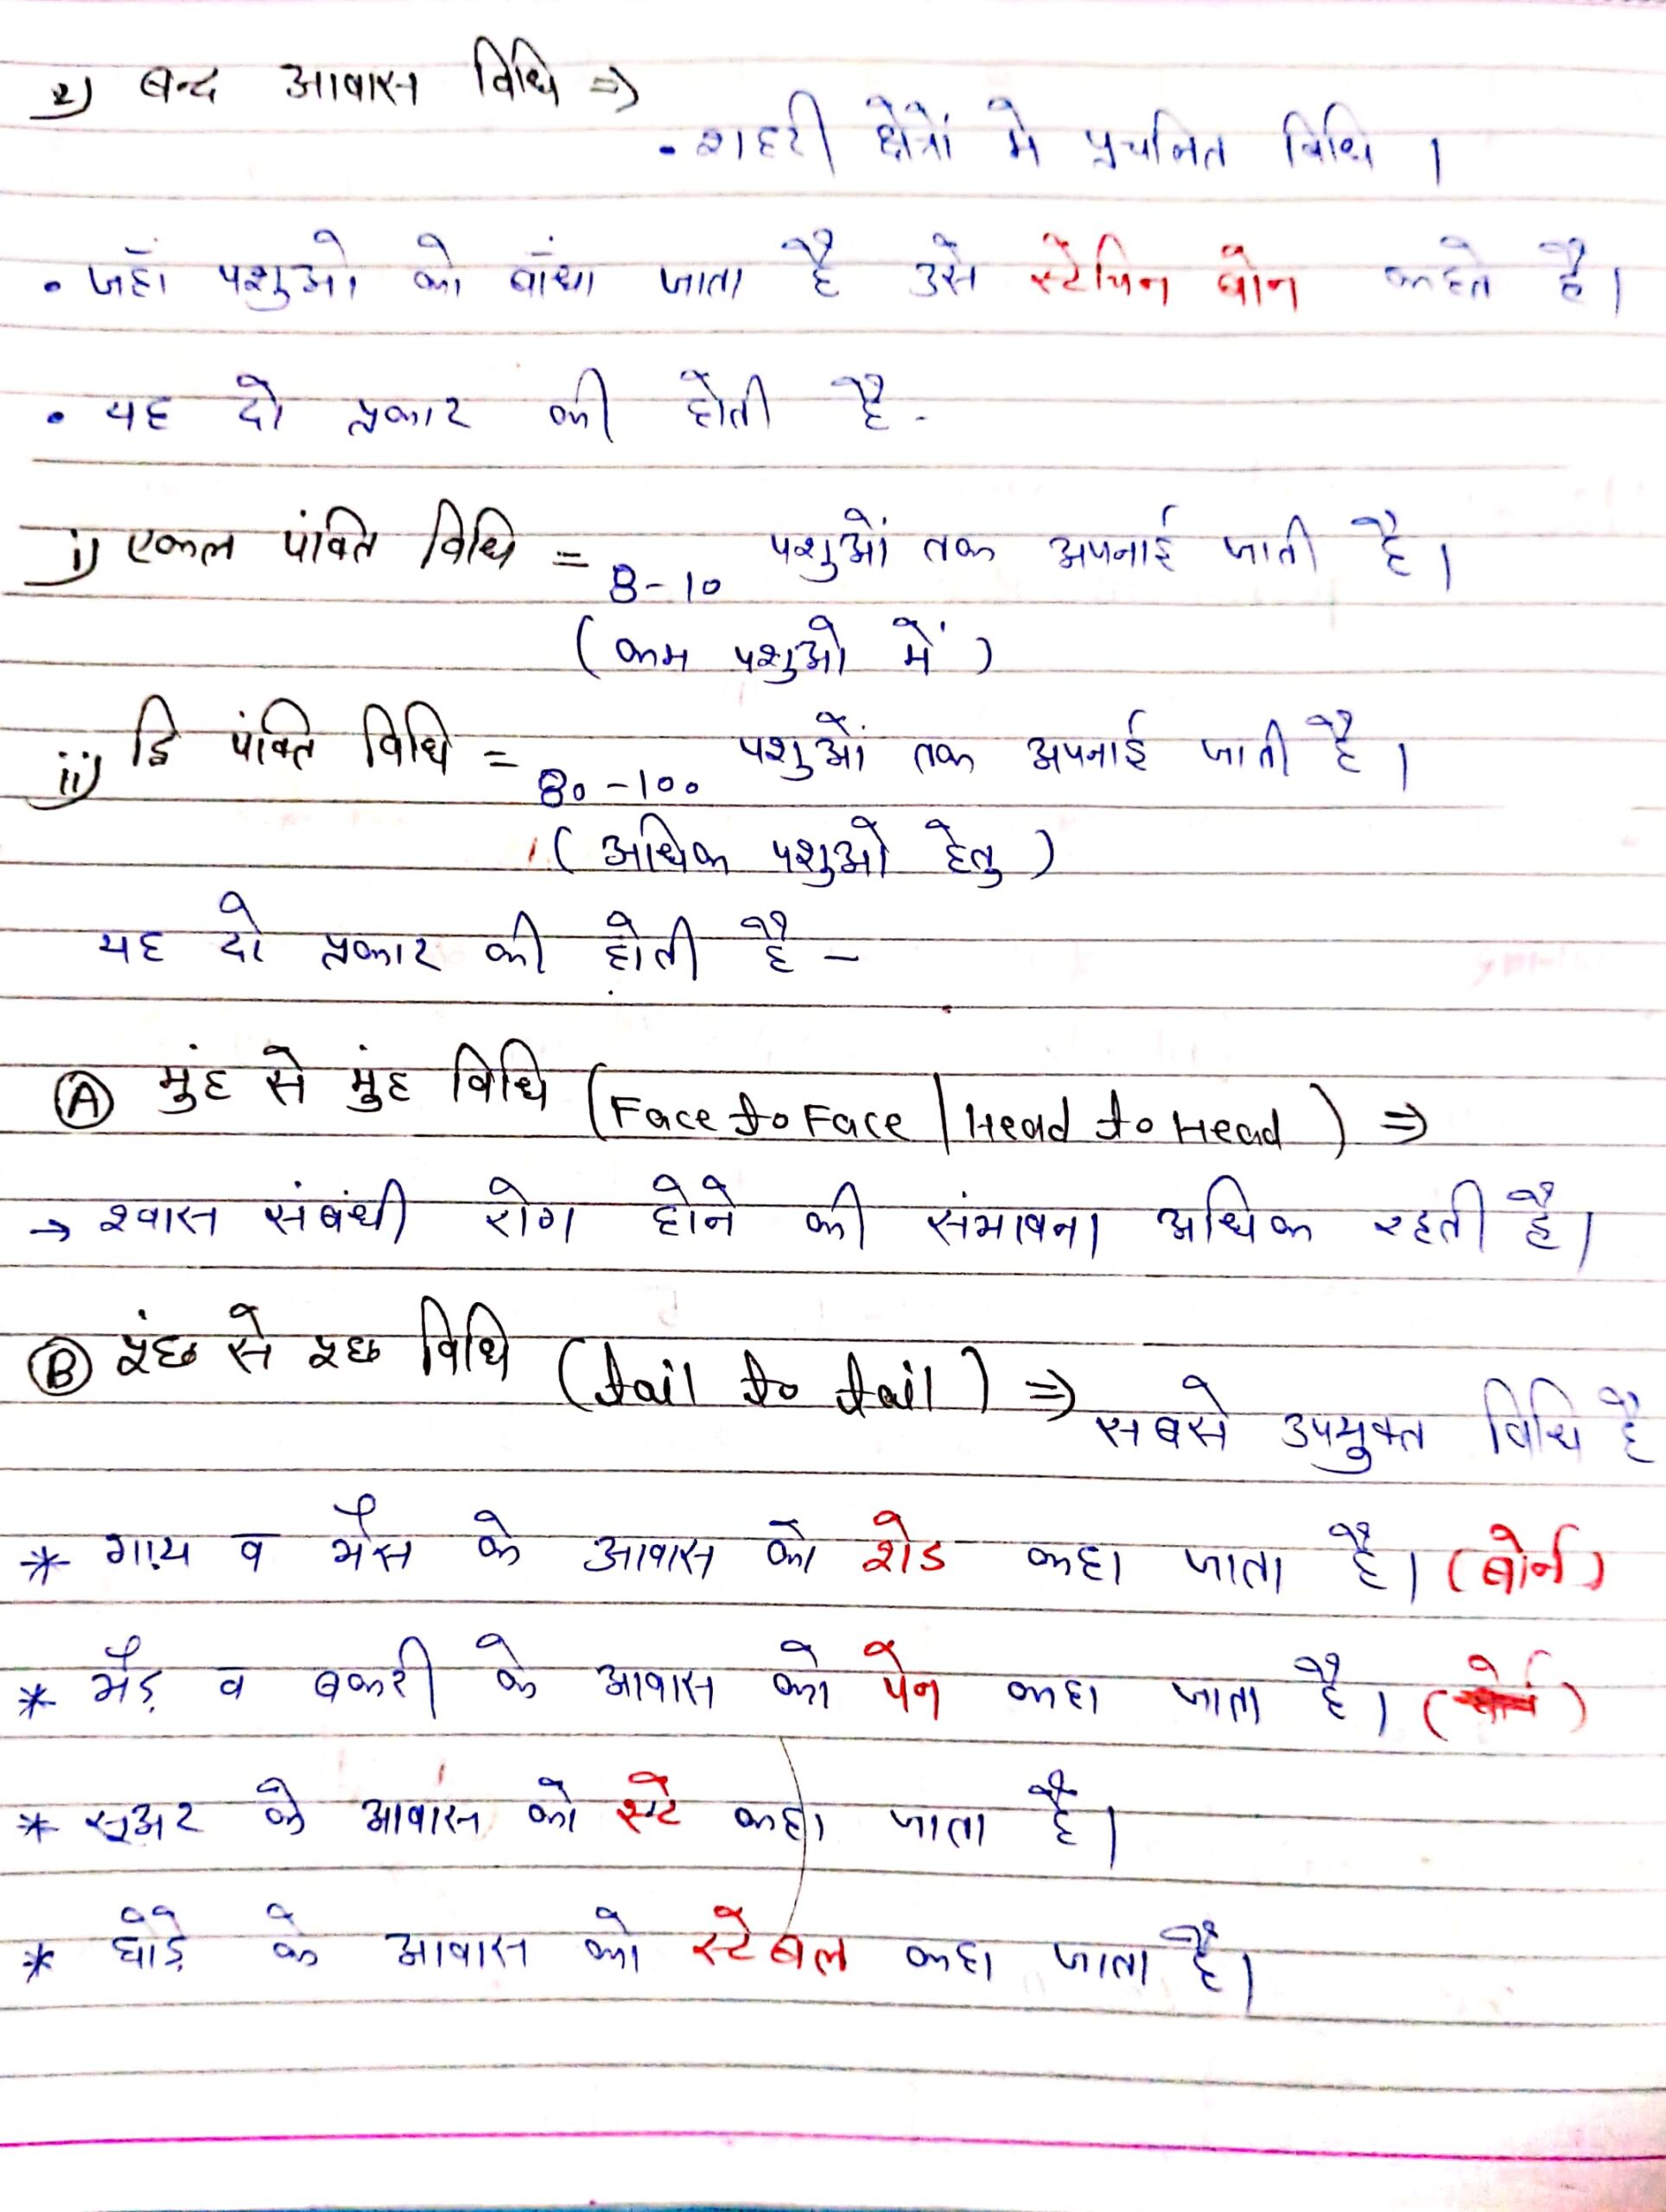 2) बन्द आवास विधि ⇒
• शहरी क्षेत्रों मे प्रचलित विधि ।
• जहाँ पशुओ को बाँधा जाता है उसे स्टेचिन बोन कहते है।
• यह दो प्रकार की होती है -
i) एकल पंक्ति विधि = 8-10 पशुओं तक अपनाई जाती है।
(कम पशुओ में)
ii) द्वि पंक्ति विधि = 80-100 पशुओं तक अपनाई जाती है।
(अधिक पशुओ हेतु)
यह दो प्रकार की होती है -
Ⓐ मुंह से मुंह विधि (Face to Face | Head to Head) ⇒
→ श्वास संबंधी रोग होने की संभावना अधिक रहती है।
Ⓑ पूंछ से पूछ विधि (tail to tail) ⇒ सबसे उपयुक्त विधि है
* गाय व भैस के आवास को शेड कहा जाता है। (बोर्न)
* भैड़ व बकरी के आवास को पेन कहा जाता है।
* सूअर के आवास को स्टे कहा जाता है।
* घोड़े के आवास को स्टेबल कहा जाता है।